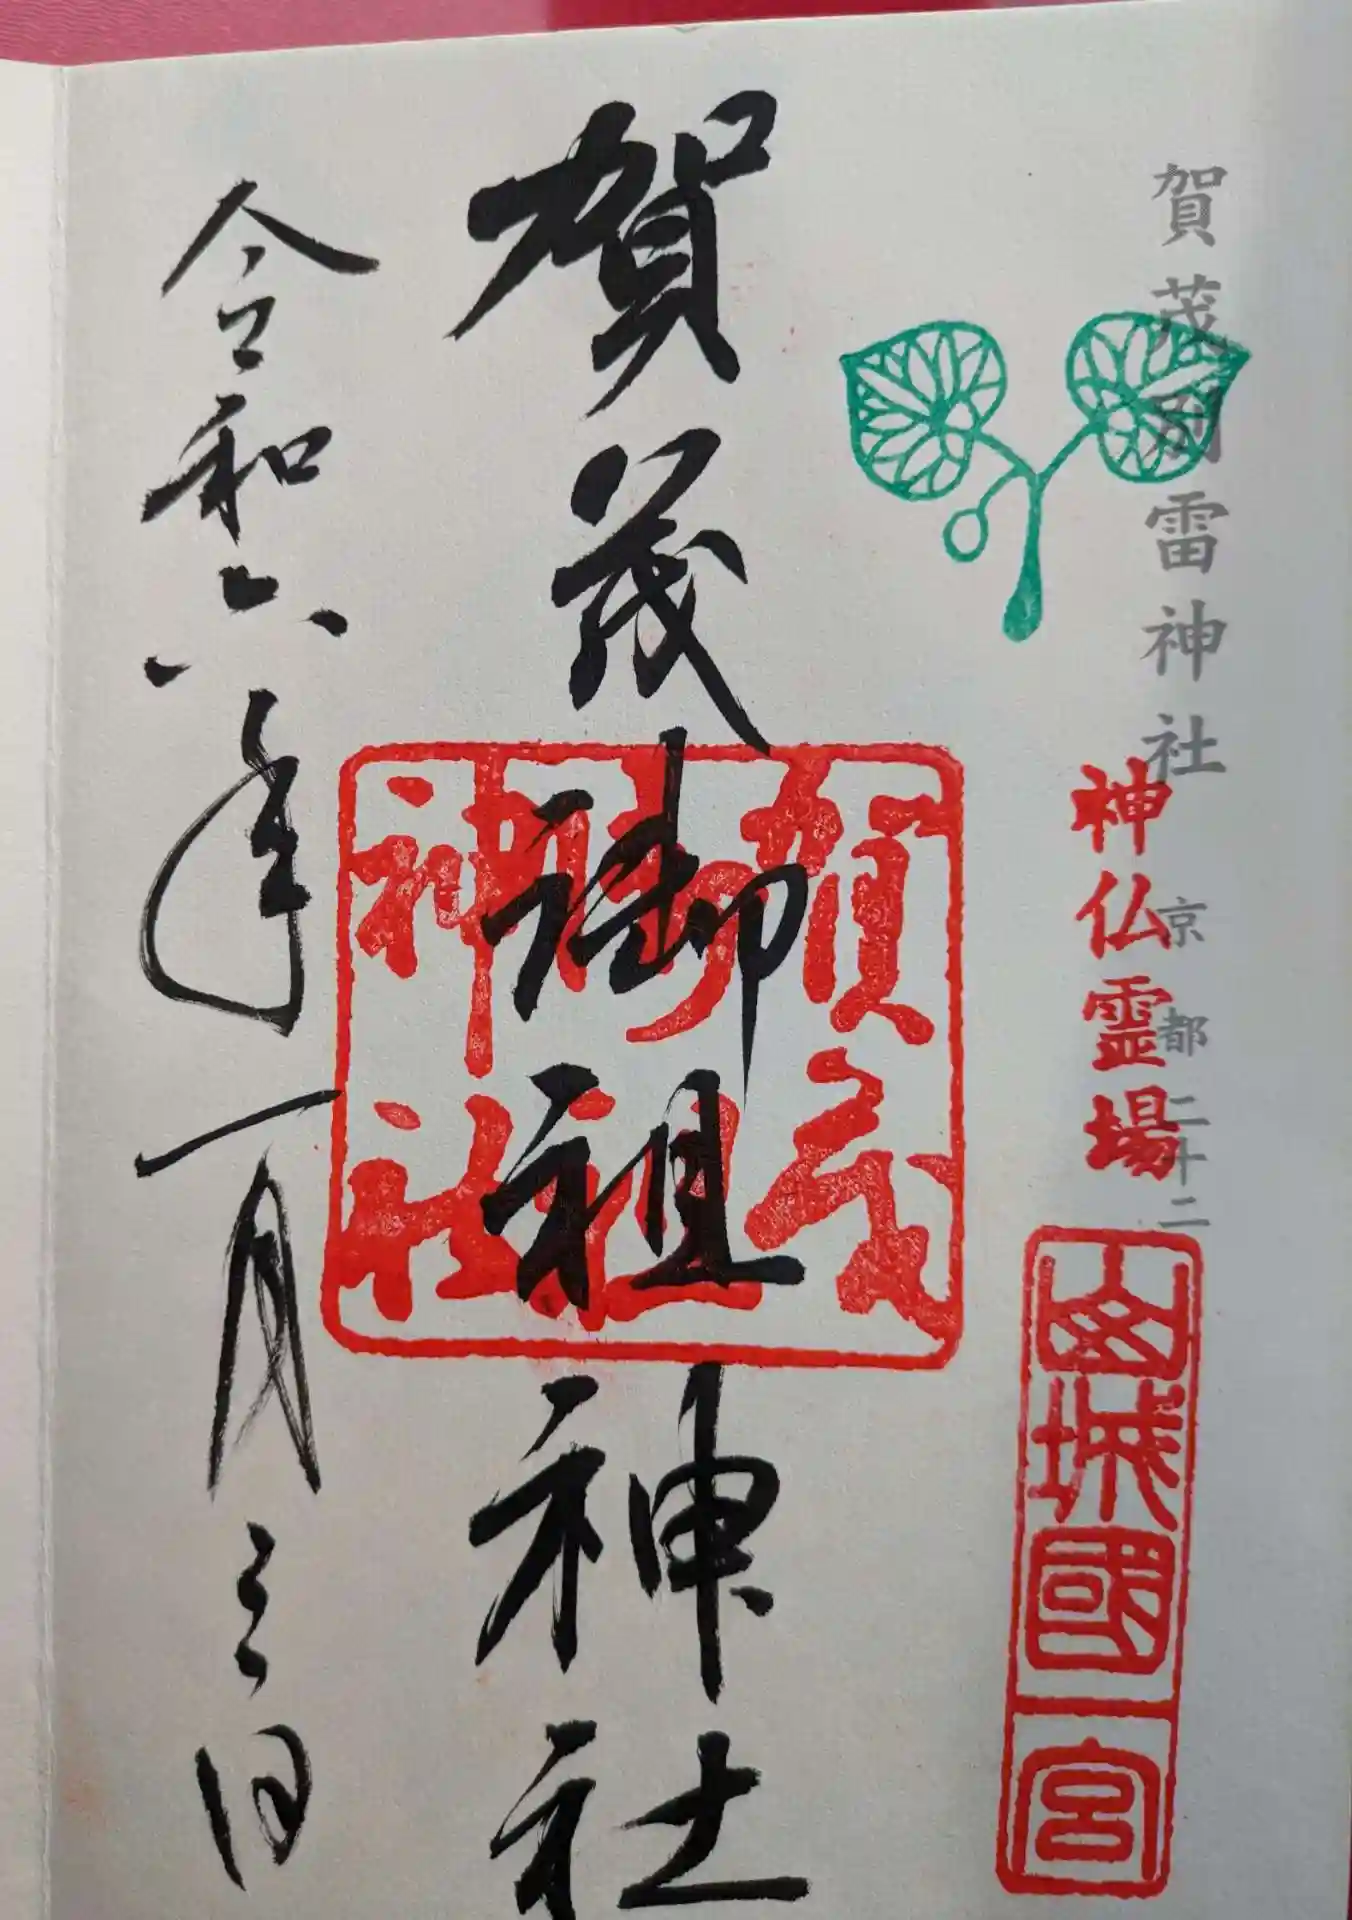 賀茂別雷神社
京都二十二
神仏霊場
山城國一宮
賀茂御祖神社
賀茂
御祖
神社
令和六年一月三日